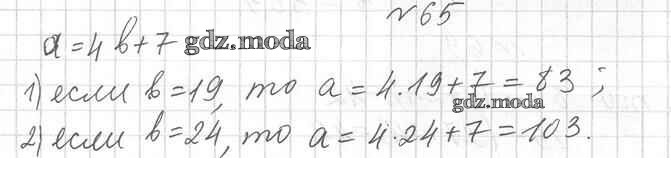 №65
a = 4b + 7 gdz.moda
1) если b = 19, то a = 4·19 + 7 = 83;
gdz.moda
2) если b = 24, то a = 4·24 + 7 = 103.